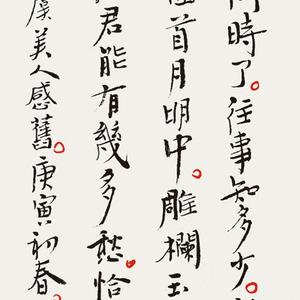 時了。往事知多少。
首月明中。雕欄玉
君能有幾多愁。恰
虞美人感舊。庚寅初春。